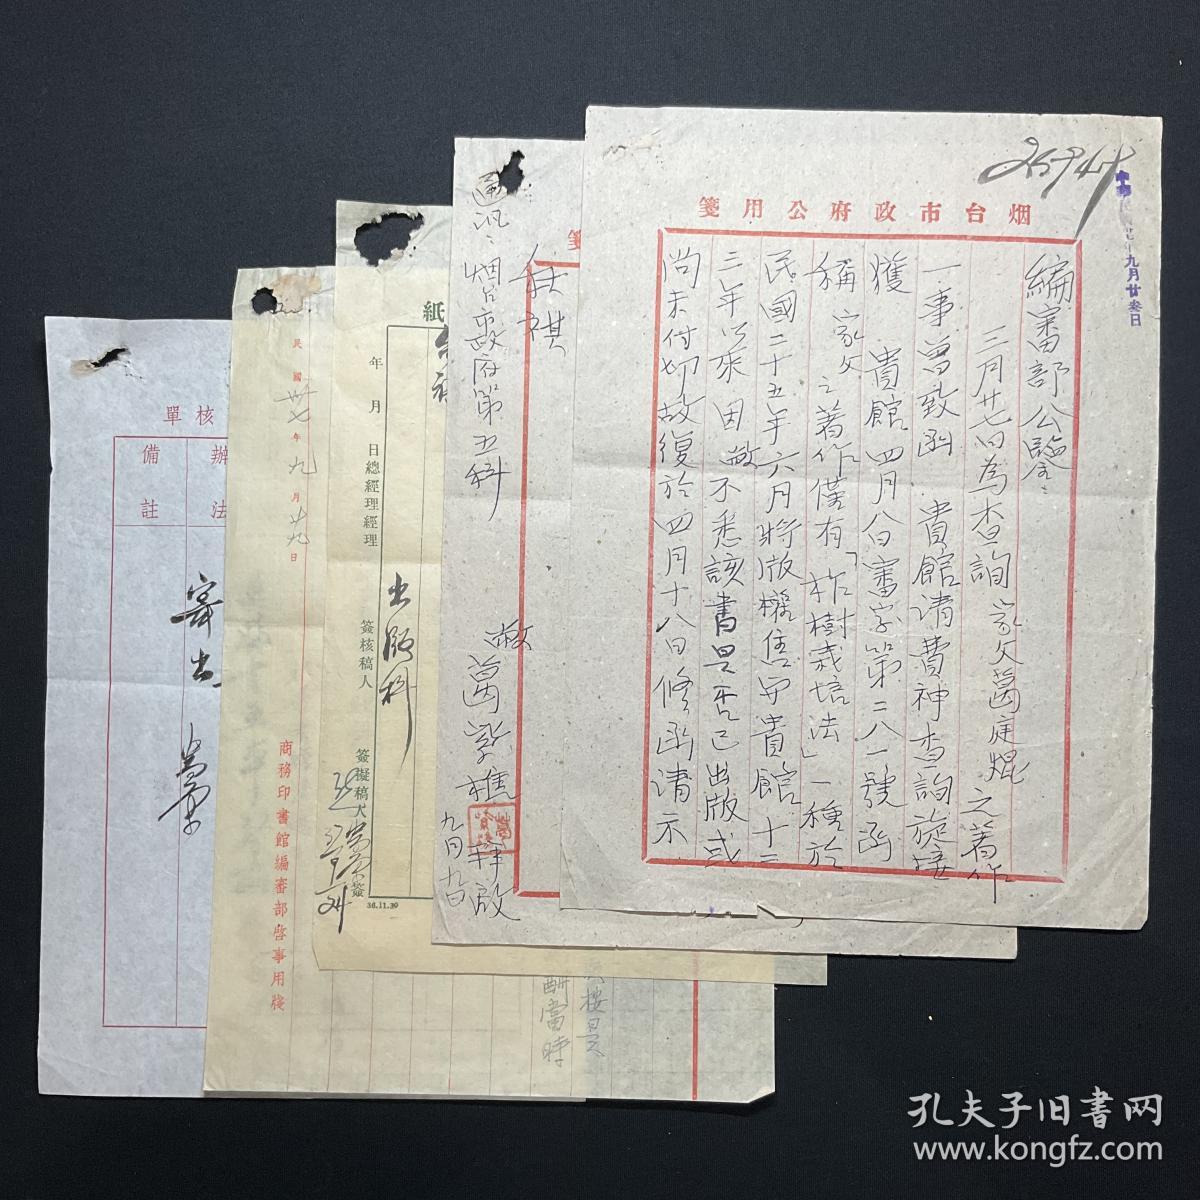 烟台市政府公用箋
編審部公鑒：
三月廿七日為查詢　家父葛庭焜之著作
一事曾致函　貴館請費神查詢旋接
獲　貴館四月八日審字第二八一號函
稱　家父之著作僅有「柞樹栽培法」一種於
民國二十五年六月將版權售與貴館十二
三年以來因敝不悉該書是否已出版或
尚未付印故復於四月十八日修函請示
秋祺
敝葛
拜啟
九月九日
通訊：烟台市政府第五科
紙
年　月　日總經理經理
簽核稿人
簽擬稿人
出版科
36.11.30
民國卅七年九月廿九日
商務印書館編審部啓事用牋
酬當時
單核
辦法
備註
寄出
孔夫子旧书网
www.kongfz.com